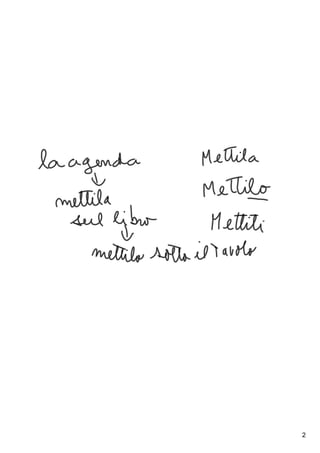 la agenda
mettila
sul libro
mettilo sotto il tavolo
Mettila
Mettilo
Mettiti
2